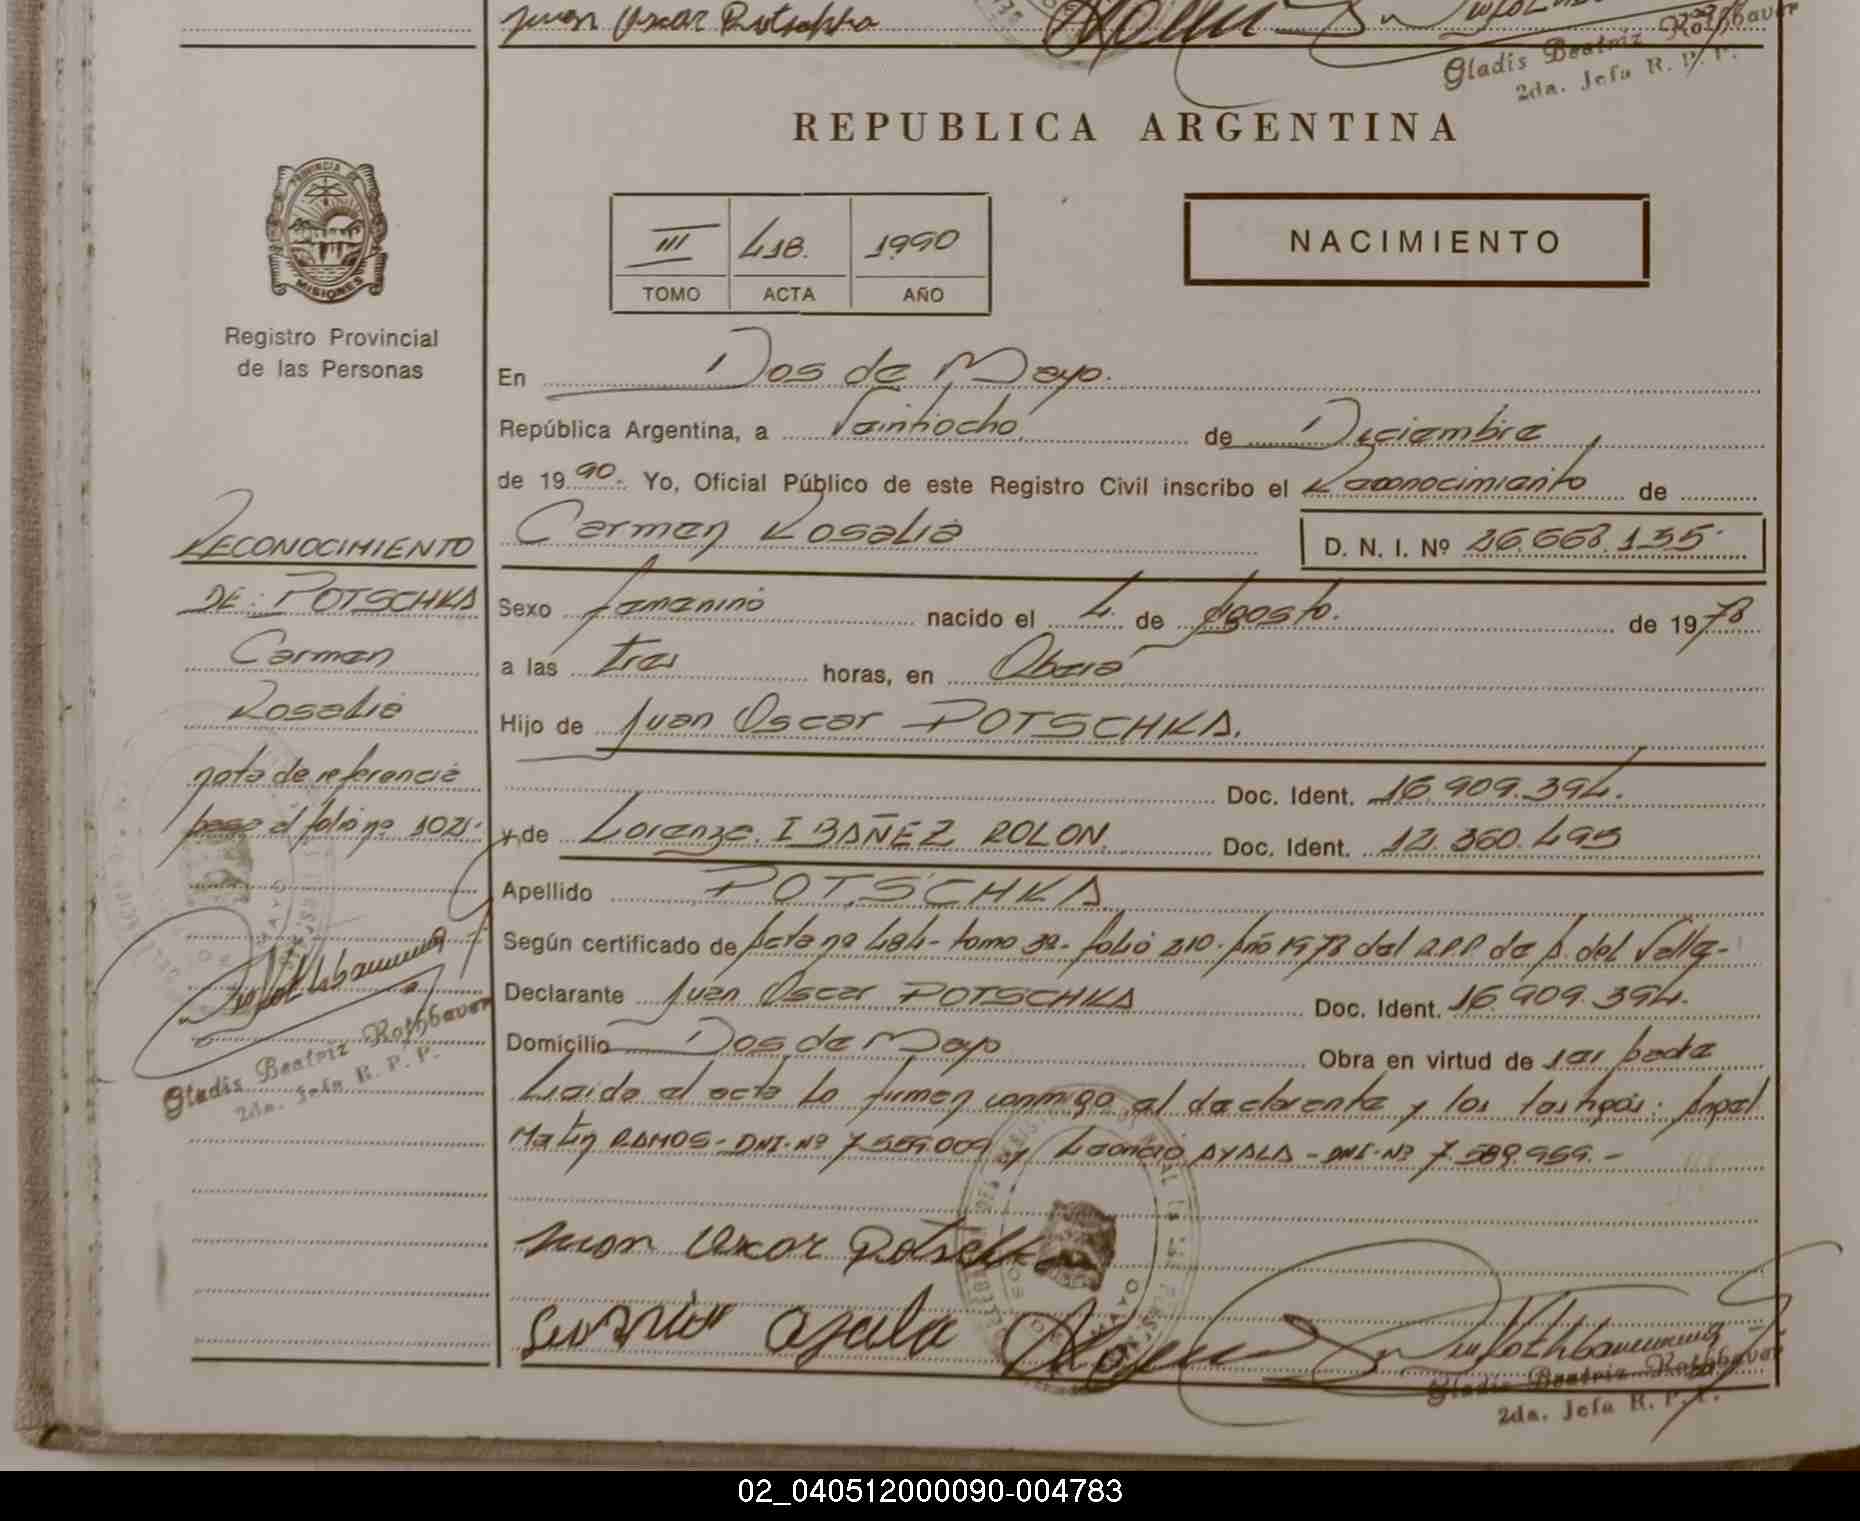 Juan Oscar Potschka
Gladis Beatriz Rothbauer
2da. Jefa R. P. P.
REPUBLICA ARGENTINA
PROVINCIA DE
MISIONES
Registro Provincial
de las Personas
III 418. 1990
TOMO ACTA AÑO
NACIMIENTO
En Dos de Mayo.
República Argentina, a Veintiocho de Diciembre
de 1990.- Yo, Oficial Público de este Registro Civil inscribo el Reconocimiento de
Carmen Rosalia D. N. I. Nº 26.668.135
Sexo femenino nacido el 4 de Agosto. de 1978
a las tres horas, en Oberá
Hijo de Juan Oscar POTSCHKA.
Doc. Ident. 16.909.394.
y de Lorenza IBAÑEZ ROLON. Doc. Ident. 12.360.493
Apellido POTSCHKA
Según certificado de Acta nº 484- tomo 3º- folio 210- Año 1978 del R.P.P. de A. del Valle-
Declarante Juan Oscar POTSCHKA Doc. Ident. 16.909.394.
Domicilio Dos de Mayo Obra en virtud de ser padre
Leida el acta la firman conmigo el declarante y los testigos: Angel
Matin RAMOS- DNI-Nº 7.559.009 y Leoncio AYALA - DNI-Nº 7.589.959.-
RECONOCIMIENTO
DE: POTSCHKA
Carmen
Rosalia
nota de referencia
pasa al folio nº 1021-
Gladis Beatriz Rothbauer
2da. Jefa R. P. P.
Juan Oscar Potschka
Ayala
Gladis Beatriz Rothbauer
2da. Jefa R. P. P.
02_040512000090-004783